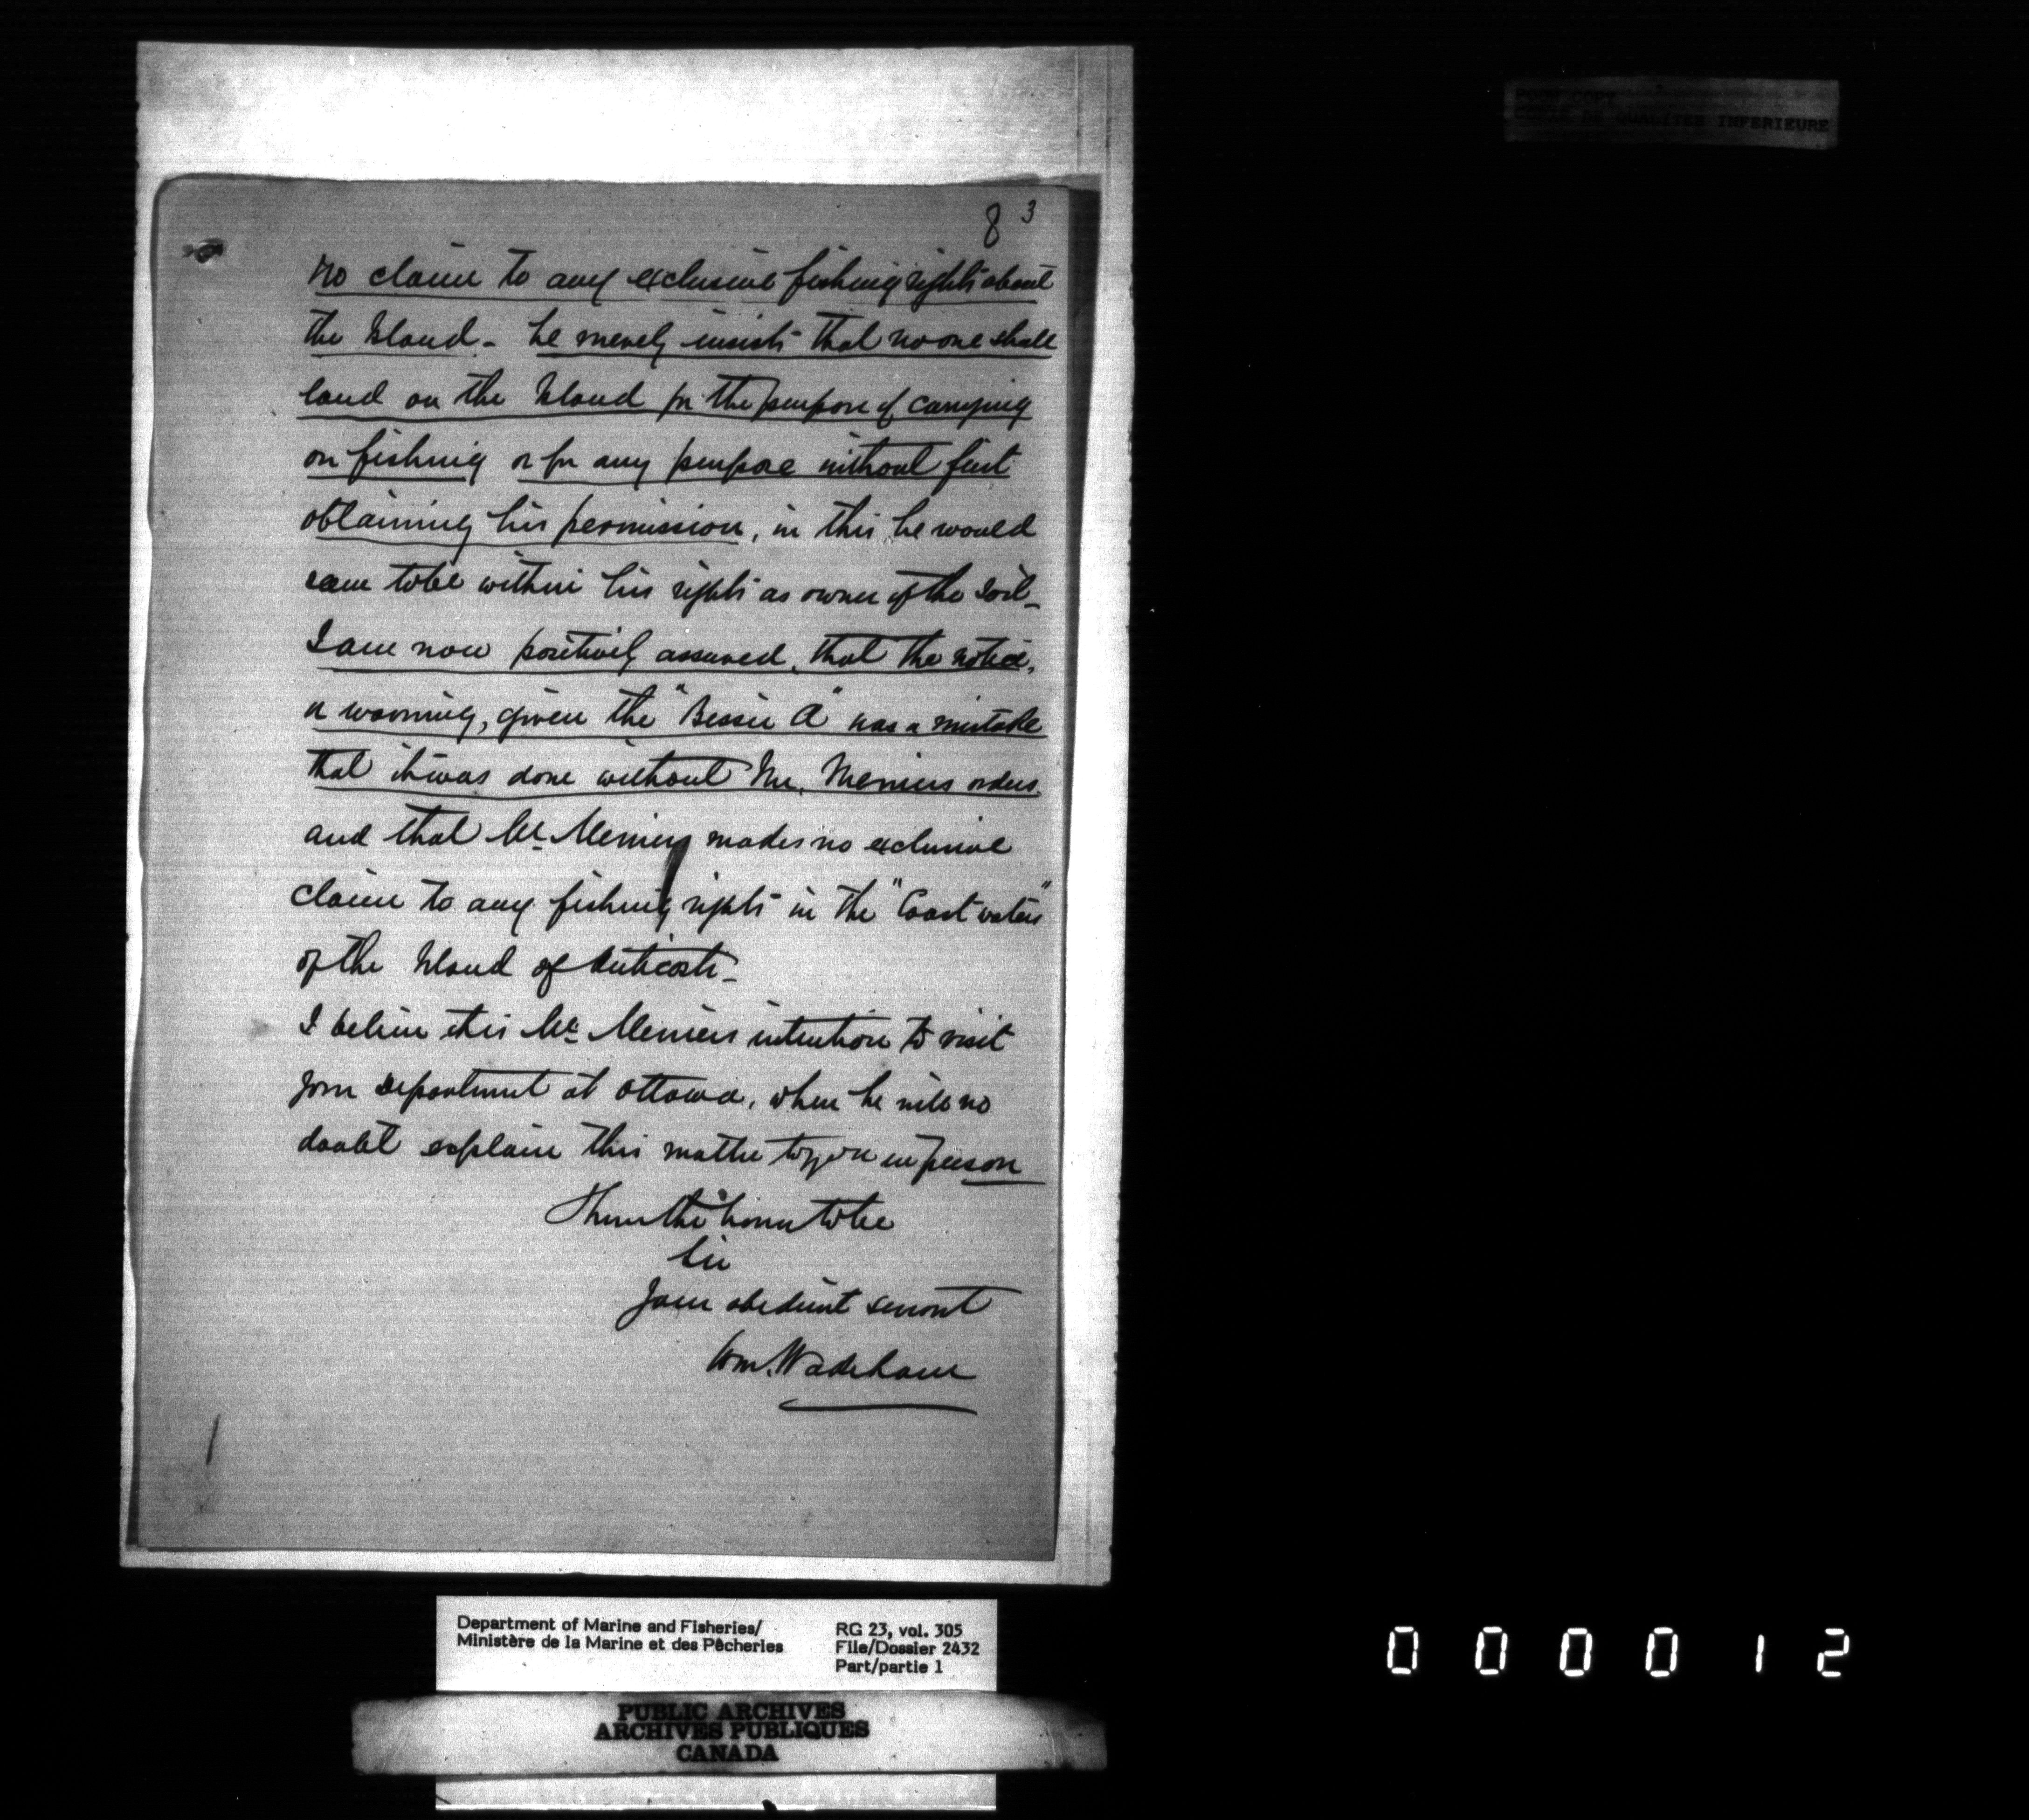 POOR COPY
COPIE DE QUALITEE INFERIEURE
8 3
no claim to any exclusive fishing rights about
the Island - he merely insists that no one shall
land on the Island for the purpose of carrying
on fishing or for any purpose without first
obtaining his permission, in this he would
seem to be within his rights as owner of the soil -
I am now positively assured, that the notice,
or warning, given the "Bessie A" was a mistake
that it was done without Mr. Meniers orders
and that Mr Menier makes no exclusive
claim to any fishing rights in the "Coast waters"
of the Island of Anticosti -
I believe it is Mr Meniers intention to visit
your Department at Ottawa, when he will no
doubt explain this matter to you in person
I have the honor to be
Sir
Your obedient servant
Wm. Wakeham
Department of Marine and Fisheries/
Ministère de la Marine et des Pêcheries
RG 23, vol. 305
File/Dossier 2432
Part/partie 1
PUBLIC ARCHIVES
ARCHIVES PUBLIQUES
CANADA
000012